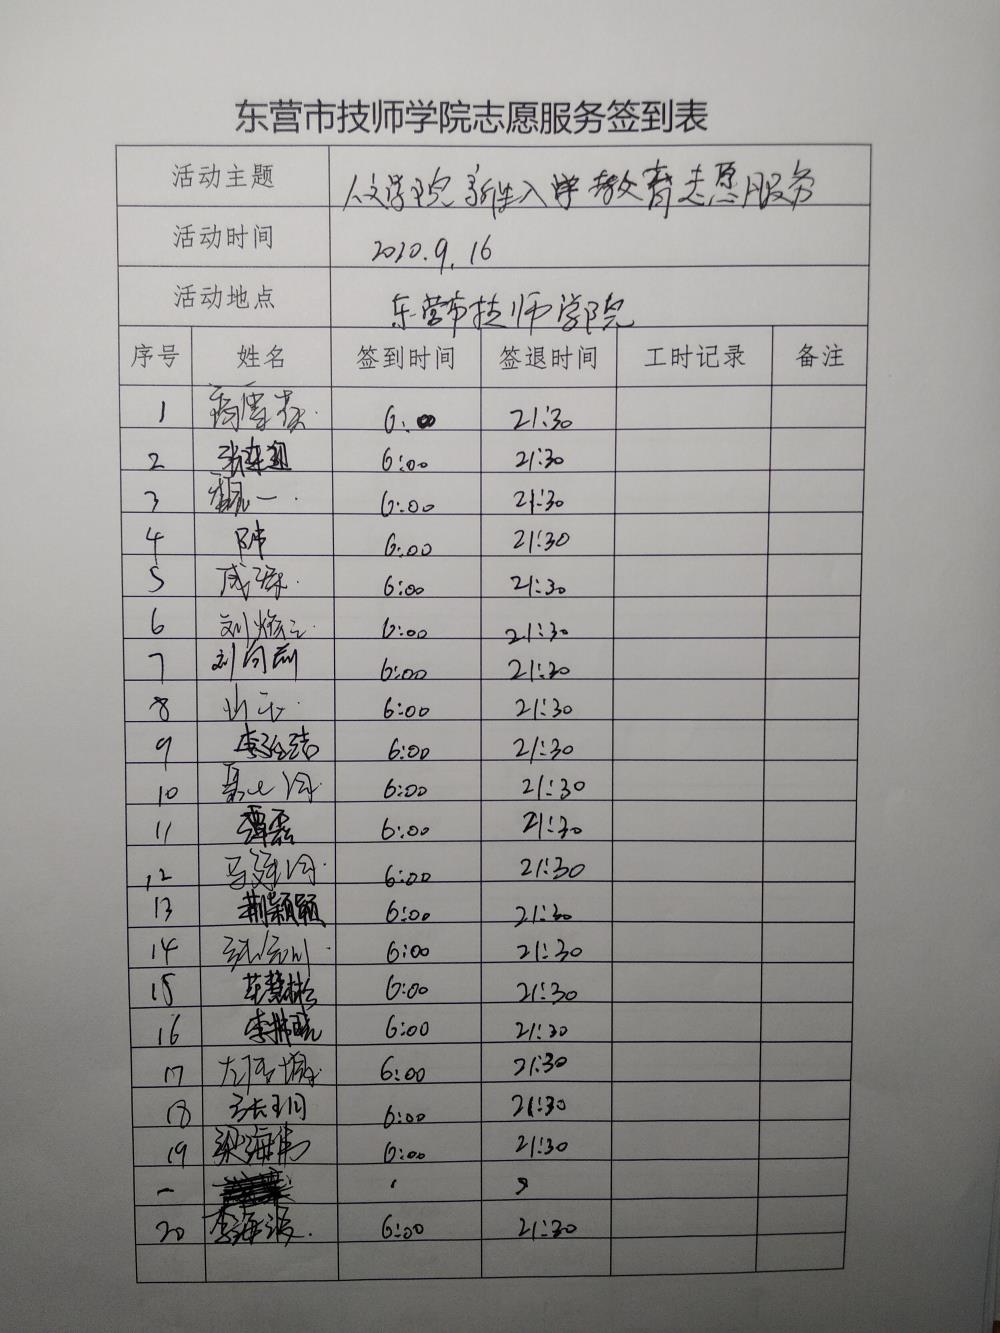 东营市技师学院志愿服务签到表
活动主题 人文学院新生入学教育志愿服务
活动时间 2020.9.16
活动地点 东营市技师学院
序号 姓名 签到时间 签退时间 工时记录 备注
1 6:00 21:30
2 6:00 21:30
3 6:00 21:30
4 6:00 21:30
5 6:00 21:30
6 刘 6:00 21:30
7 刘向前 6:00 21:30
8 6:00 21:30
9 李 洁 6:00 21:30
10 6:00 21:30
11 谭磊 6:00 21:30
12 6:00 21:30
13 荆颖颖 6:00 21:30
14 6:00 21:30
15 6:00 21:30
16 李 6:00 21:30
17 6:00 21:30
18 6:00 21:30
19 梁海伟 6:00 21:30
20 李海波 6:00 21:30